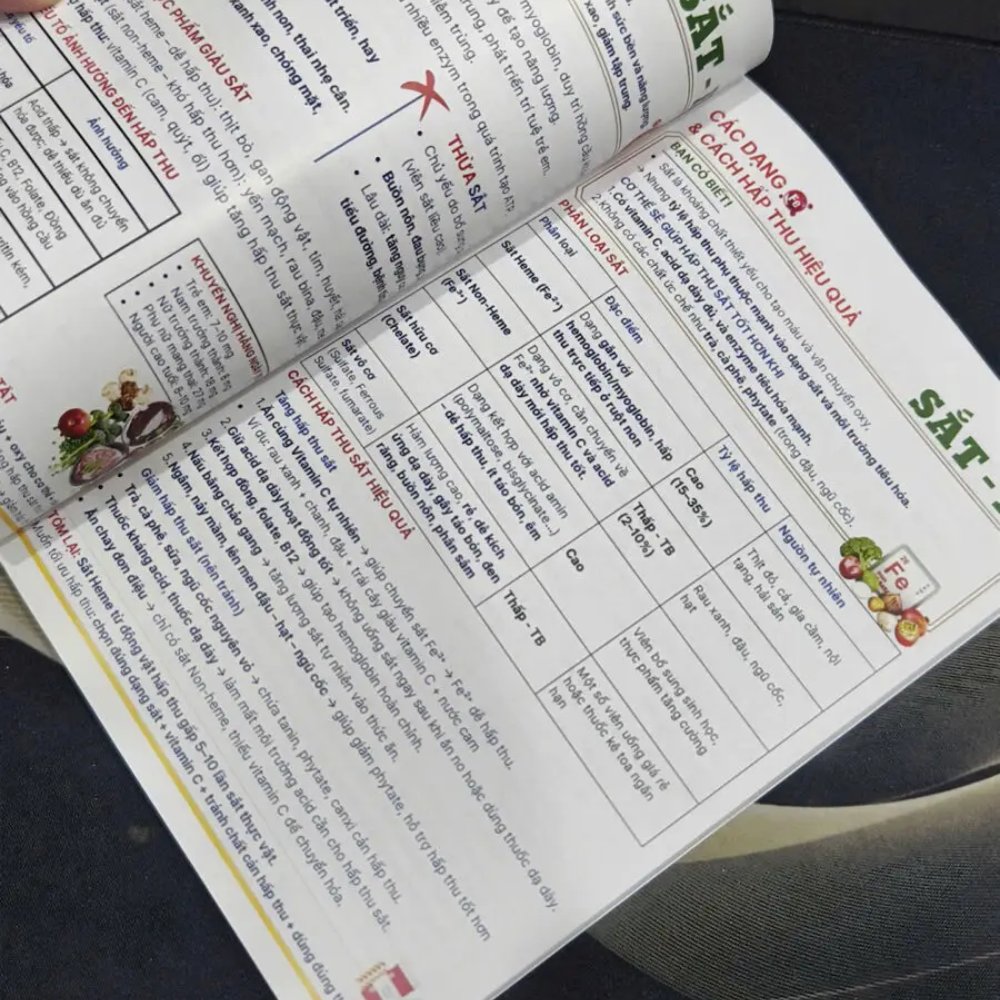 SẮT -
CÁC DẠNG
& CÁCH HẤP THU HIỆU QUẢ
BẠN CÓ BIẾT!
• Sắt là khoáng chất thiết yếu cho tạo máu và vận chuyển oxy.
→ Nhưng tỷ lệ hấp thu phụ thuộc mạnh vào dạng sắt và môi trường tiêu hóa.
CƠ THỂ SẼ GIÚP HẤP THU SẮT TỐT HƠN KHI
1. Có vitamin C, acid dạ dày đủ, và enzyme tiêu hóa mạnh.
2. Không có các chất ức chế như trà, cà phê, phytate (trong đậu, ngũ cốc).
26
Fe
PHÂN LOẠI SẮT
Phân loại
Đặc điểm
Tỷ lệ hấp thu
Nguồn tự nhiên
Sắt Heme (Fe²⁺)
Dạng gắn với
hemoglobin/myoglobin, hấp
thu trực tiếp ở ruột non
Cao
(15-35%)
Thịt đỏ, cá, gia cầm, nội
tạng, hải sản
Sắt Non-Heme
(Fe³⁺)
Dạng vô cơ, cần chuyển về
Fe²⁺ nhờ vitamin C và acid
dạ dày mới hấp thu tốt.
Thấp - TB
(2-10%)
Rau xanh, đậu, ngũ cốc,
hạt
Sắt hữu cơ
(Chelate)
Dạng kết hợp với acid amin
(polymaltose, bisglycinate...)
- dễ hấp thu, ít táo bón, êm
Cao
Viên bổ sung sinh học,
thực phẩm tăng cường
Sắt vô cơ
(Sulfate, Ferrous
Sulfate, fumarate)
Hàm lượng cao, rẻ, dễ kích
ứng dạ dày, gây táo bón, đen
răng, buồn nôn, phân sẫm
Thấp - TB
Một số viên uống giá rẻ
hoặc thuốc kê toa ngắn
hạn
CÁCH HẤP THU SẮT HIỆU QUẢ
Tăng hấp thu sắt
1. Ăn cùng Vitamin C tự nhiên → giúp chuyển sắt Fe³⁺ → Fe²⁺ dễ hấp thu.
• Ví dụ: rau xanh + chanh, đậu + trái cây giàu vitamin C + nước cam
2. Giữ acid dạ dày hoạt động tốt → không uống sắt ngay sau khi ăn no hoặc dùng thuốc dạ dày.
3. Kết hợp đồng, folate, B12 → giúp tạo hemoglobin hoàn chỉnh.
4. Nấu bằng chảo gang → tăng lượng sắt tự nhiên vào thức ăn.
5. Ngâm, nảy mầm, lên men đậu – hạt – ngũ cốc → giúp giảm phytate, hỗ trợ hấp thu tốt hơn
Giảm hấp thu sắt (nên tránh)
Trà, cà phê, sữa, ngũ cốc nguyên vỏ → chứa tanin, phytate, canxi cản hấp thu.
Thuốc kháng acid, thuốc dạ dày → làm mất môi trường acid cần cho hấp thu sắt.
Ăn chay đơn điệu → chỉ có sắt Non-heme, thiếu vitamin C để chuyển hóa.
TÓM LẠI: Sắt Heme từ động vật hấp thu gấp 5–10 lần sắt thực vật.
uốn tối ưu hấp thu: chọn đúng dạng sắt + vitamin C + tránh chất cản hấp thu + dùng đúng
SẮT -
myoglobin, duy trì hồng cầu
để tạo năng lượng.
iễm trùng.
ung, phát triển trí tuệ trẻ em.
nhiều enzym trong quá trình tạo ATP
THỪA SẮT
• Chủ yếu do bổ sung
(viên sắt liều cao)
• Buồn nôn, đau bụng
• Lâu dài: tăng nguy
tiểu đường, bệnh
t triển, hay
nh non, thai nhẹ cân.
xanh xao, chóng mặt,
C PHẨM GIÀU SẮT
sắt heme – dễ hấp thu): thịt bò, gan động vật, tim, huyết
(sắt non-heme – khó hấp thu hơn): yến mạch, rau bina, đậu
hấp thu: vitamin C (cam, quýt, ổi) giúp tăng hấp thu sắt thực vật
TỐ ẢNH HƯỞNG ĐẾN HẤP THU
Ảnh hưởng
Acid thấp → sắt không chuyển
hóa được, dễ thiếu dù ăn đủ
C, B12, Folate, Đồng
KHUYẾN NGHỊ HÀNG NGÀY
• Trẻ em: 7–10 mg
• Nam trưởng thành: 8 mg
• Nữ trưởng thành: 18 mg
• Phụ nữ mang thai: 27 mg
• Người cao tuổi: 8–10 mg